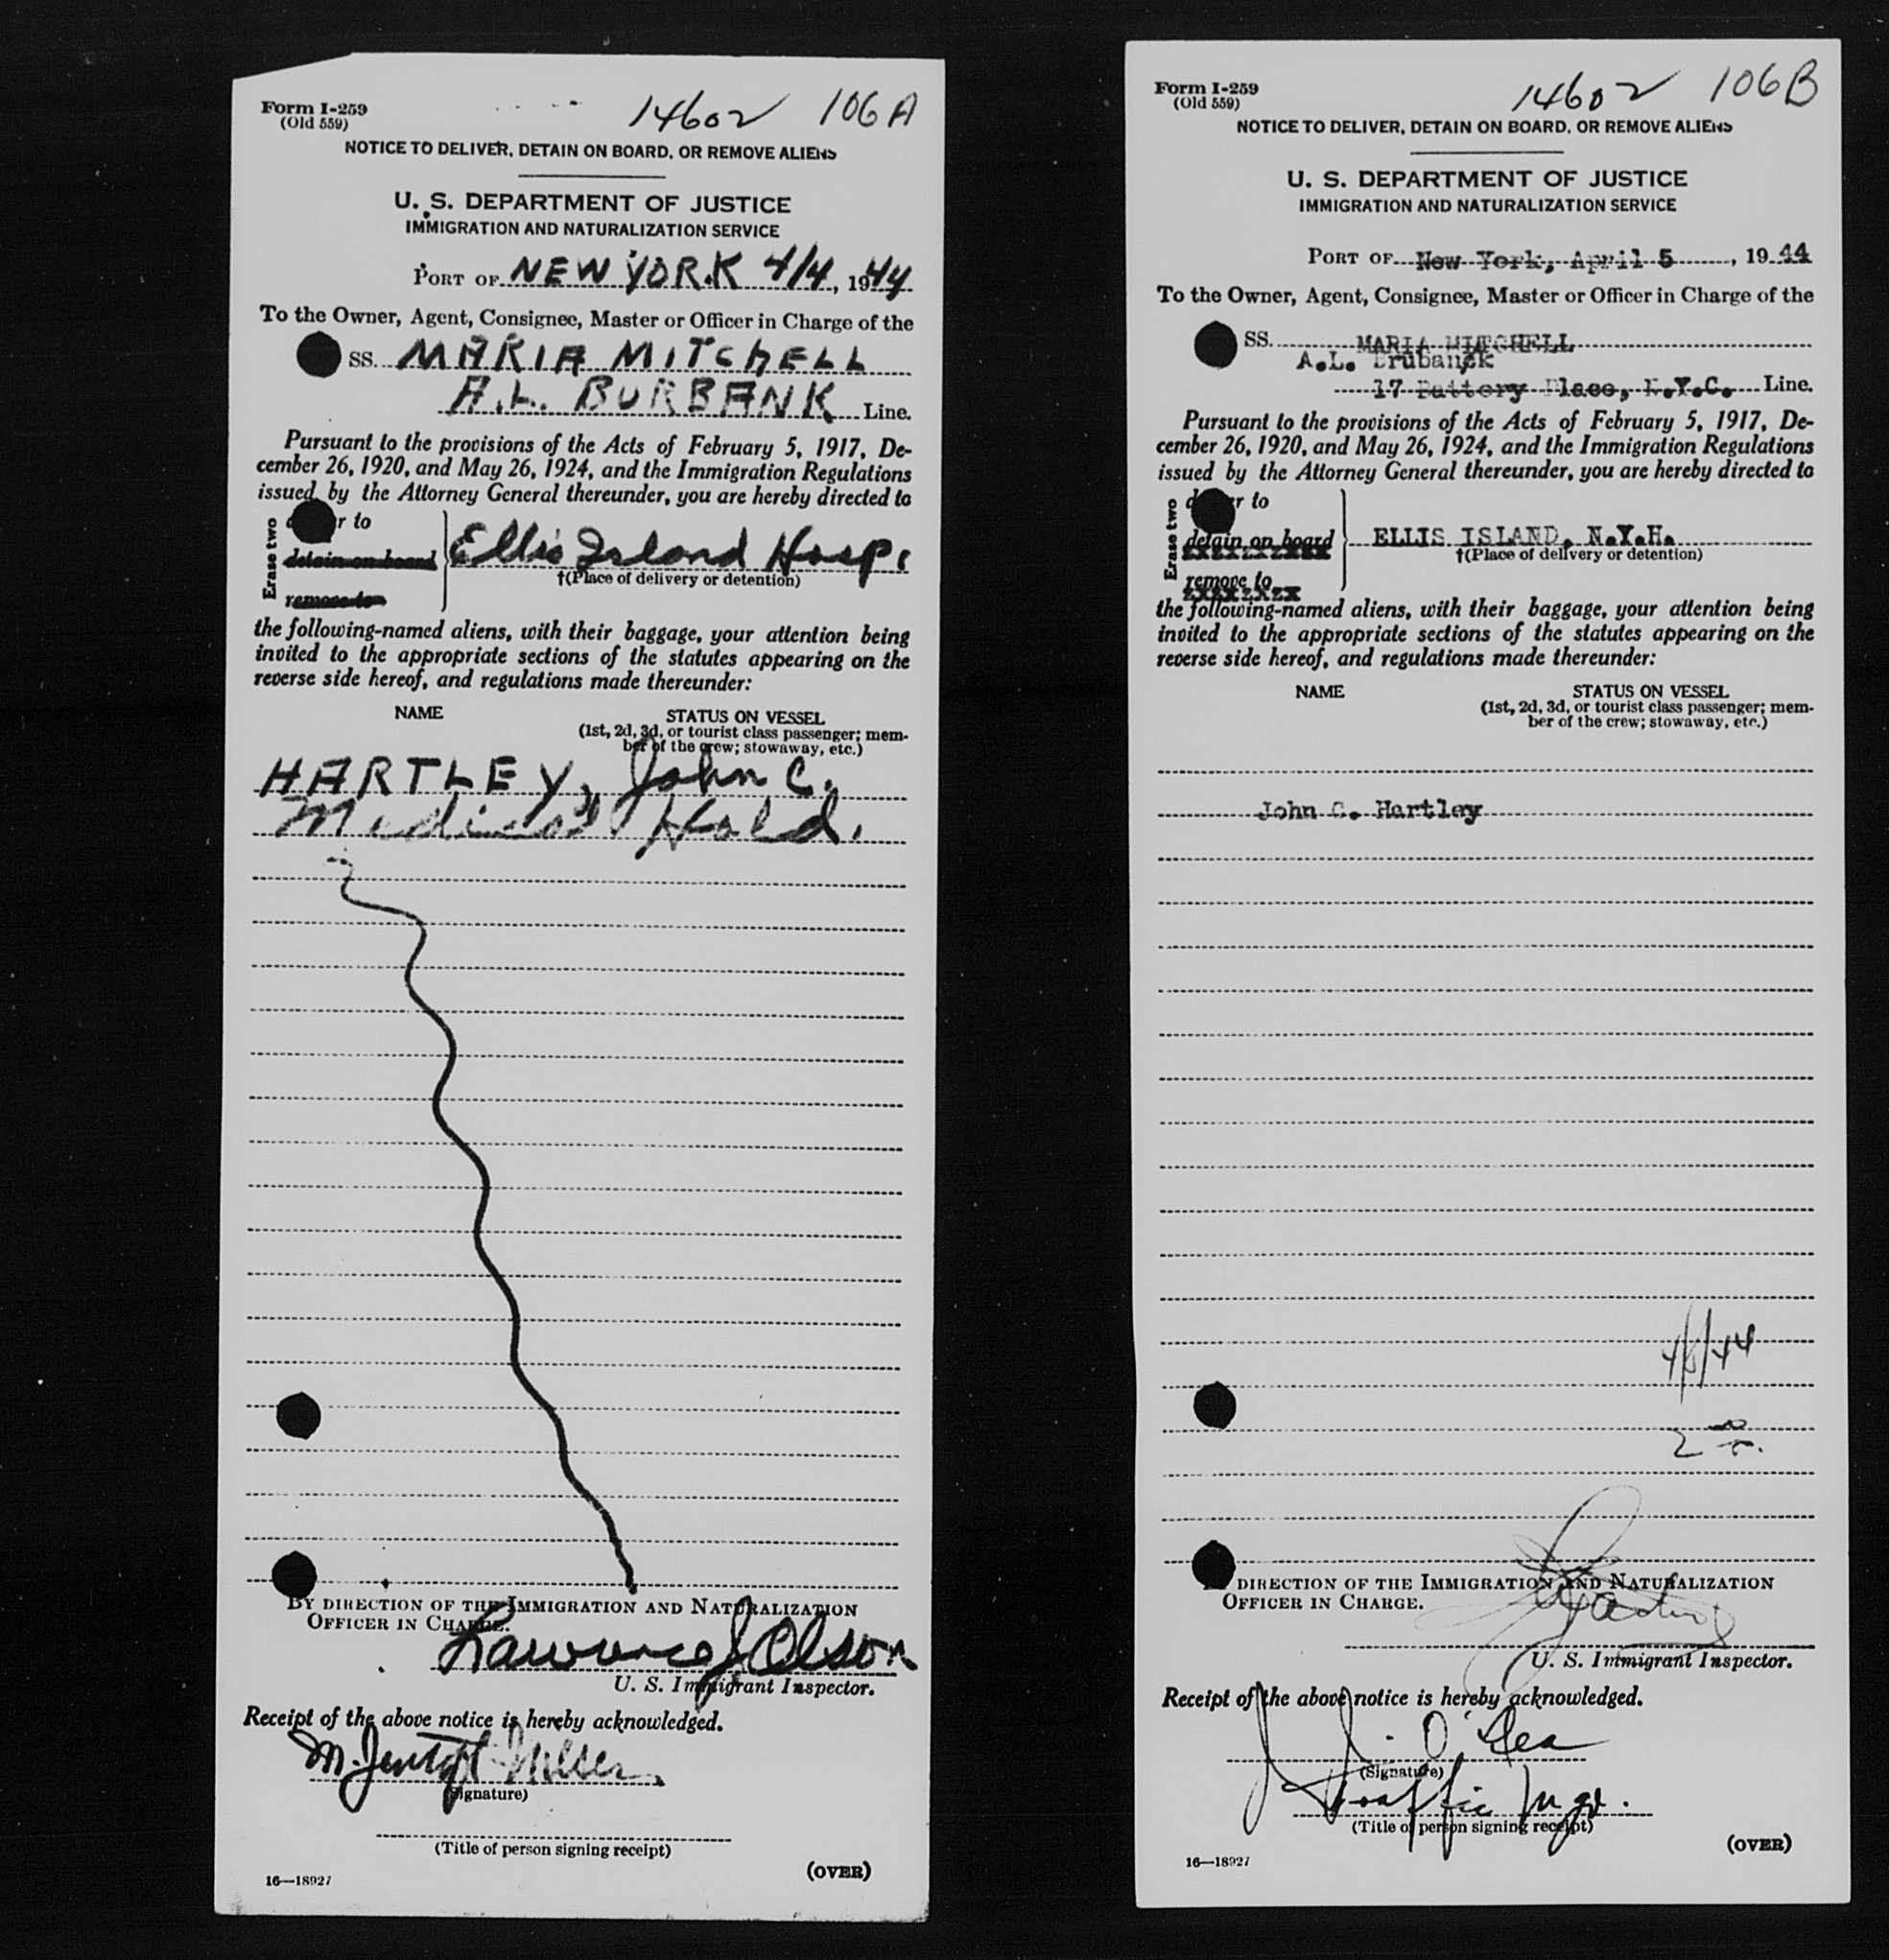 Form I-259
(Old 559)
14602 106A
NOTICE TO DELIVER, DETAIN ON BOARD, OR REMOVE ALIENS
U. S. DEPARTMENT OF JUSTICE
IMMIGRATION AND NATURALIZATION SERVICE
PORT OF NEW YORK 4/4, 1944
To the Owner, Agent, Consignee, Master or Officer in Charge of the
SS. MARIA MITCHELL
A.L. BURBANK Line.
Pursuant to the provisions of the Acts of February 5, 1917, De-
cember 26, 1920, and May 26, 1924, and the Immigration Regulations
issued by the Attorney General thereunder, you are hereby directed to
Erase two
r to
detain on board
remove to
Ellis Island Hosp.
†(Place of delivery or detention)
the following-named aliens, with their baggage, your attention being
invited to the appropriate sections of the statutes appearing on the
reverse side hereof, and regulations made thereunder:
NAME STATUS ON VESSEL
(1st, 2d, 3d, or tourist class passenger; mem-
ber of the crew; stowaway, etc.)
HARTLEY, John C.
Medical Hold.
BY DIRECTION OF THE IMMIGRATION AND NATURALIZATION
OFFICER IN CHARGE.
Lawrence J Olson
U. S. Immigrant Inspector.
Receipt of the above notice is hereby acknowledged.
M.
(Signature)
(Title of person signing receipt)
16—18927 (OVER)
Form I-259
(Old 559)
14602 106B
NOTICE TO DELIVER, DETAIN ON BOARD, OR REMOVE ALIENS
U. S. DEPARTMENT OF JUSTICE
IMMIGRATION AND NATURALIZATION SERVICE
PORT OF New York, April 5, 1944
To the Owner, Agent, Consignee, Master or Officer in Charge of the
SS. MARIA MITCHELL
A.L. Brubanck
17 Battery Place, N.Y.C. Line.
Pursuant to the provisions of the Acts of February 5, 1917, De-
cember 26, 1920, and May 26, 1924, and the Immigration Regulations
issued by the Attorney General thereunder, you are hereby directed to
Erase two
r to
detain on board
remove to
ELLIS ISLAND, N.Y.H.
†(Place of delivery or detention)
the following-named aliens, with their baggage, your attention being
invited to the appropriate sections of the statutes appearing on the
reverse side hereof, and regulations made thereunder:
NAME STATUS ON VESSEL
(1st, 2d, 3d, or tourist class passenger; mem-
ber of the crew; stowaway, etc.)
John C. Hartley
DIRECTION OF THE IMMIGRATION AND NATURALIZATION
OFFICER IN CHARGE.
U. S. Immigrant Inspector.
Receipt of the above notice is hereby acknowledged.
O'Dea
(Signature)
Traffic Mgr.
(Title of person signing receipt)
(OVER)
16—18927